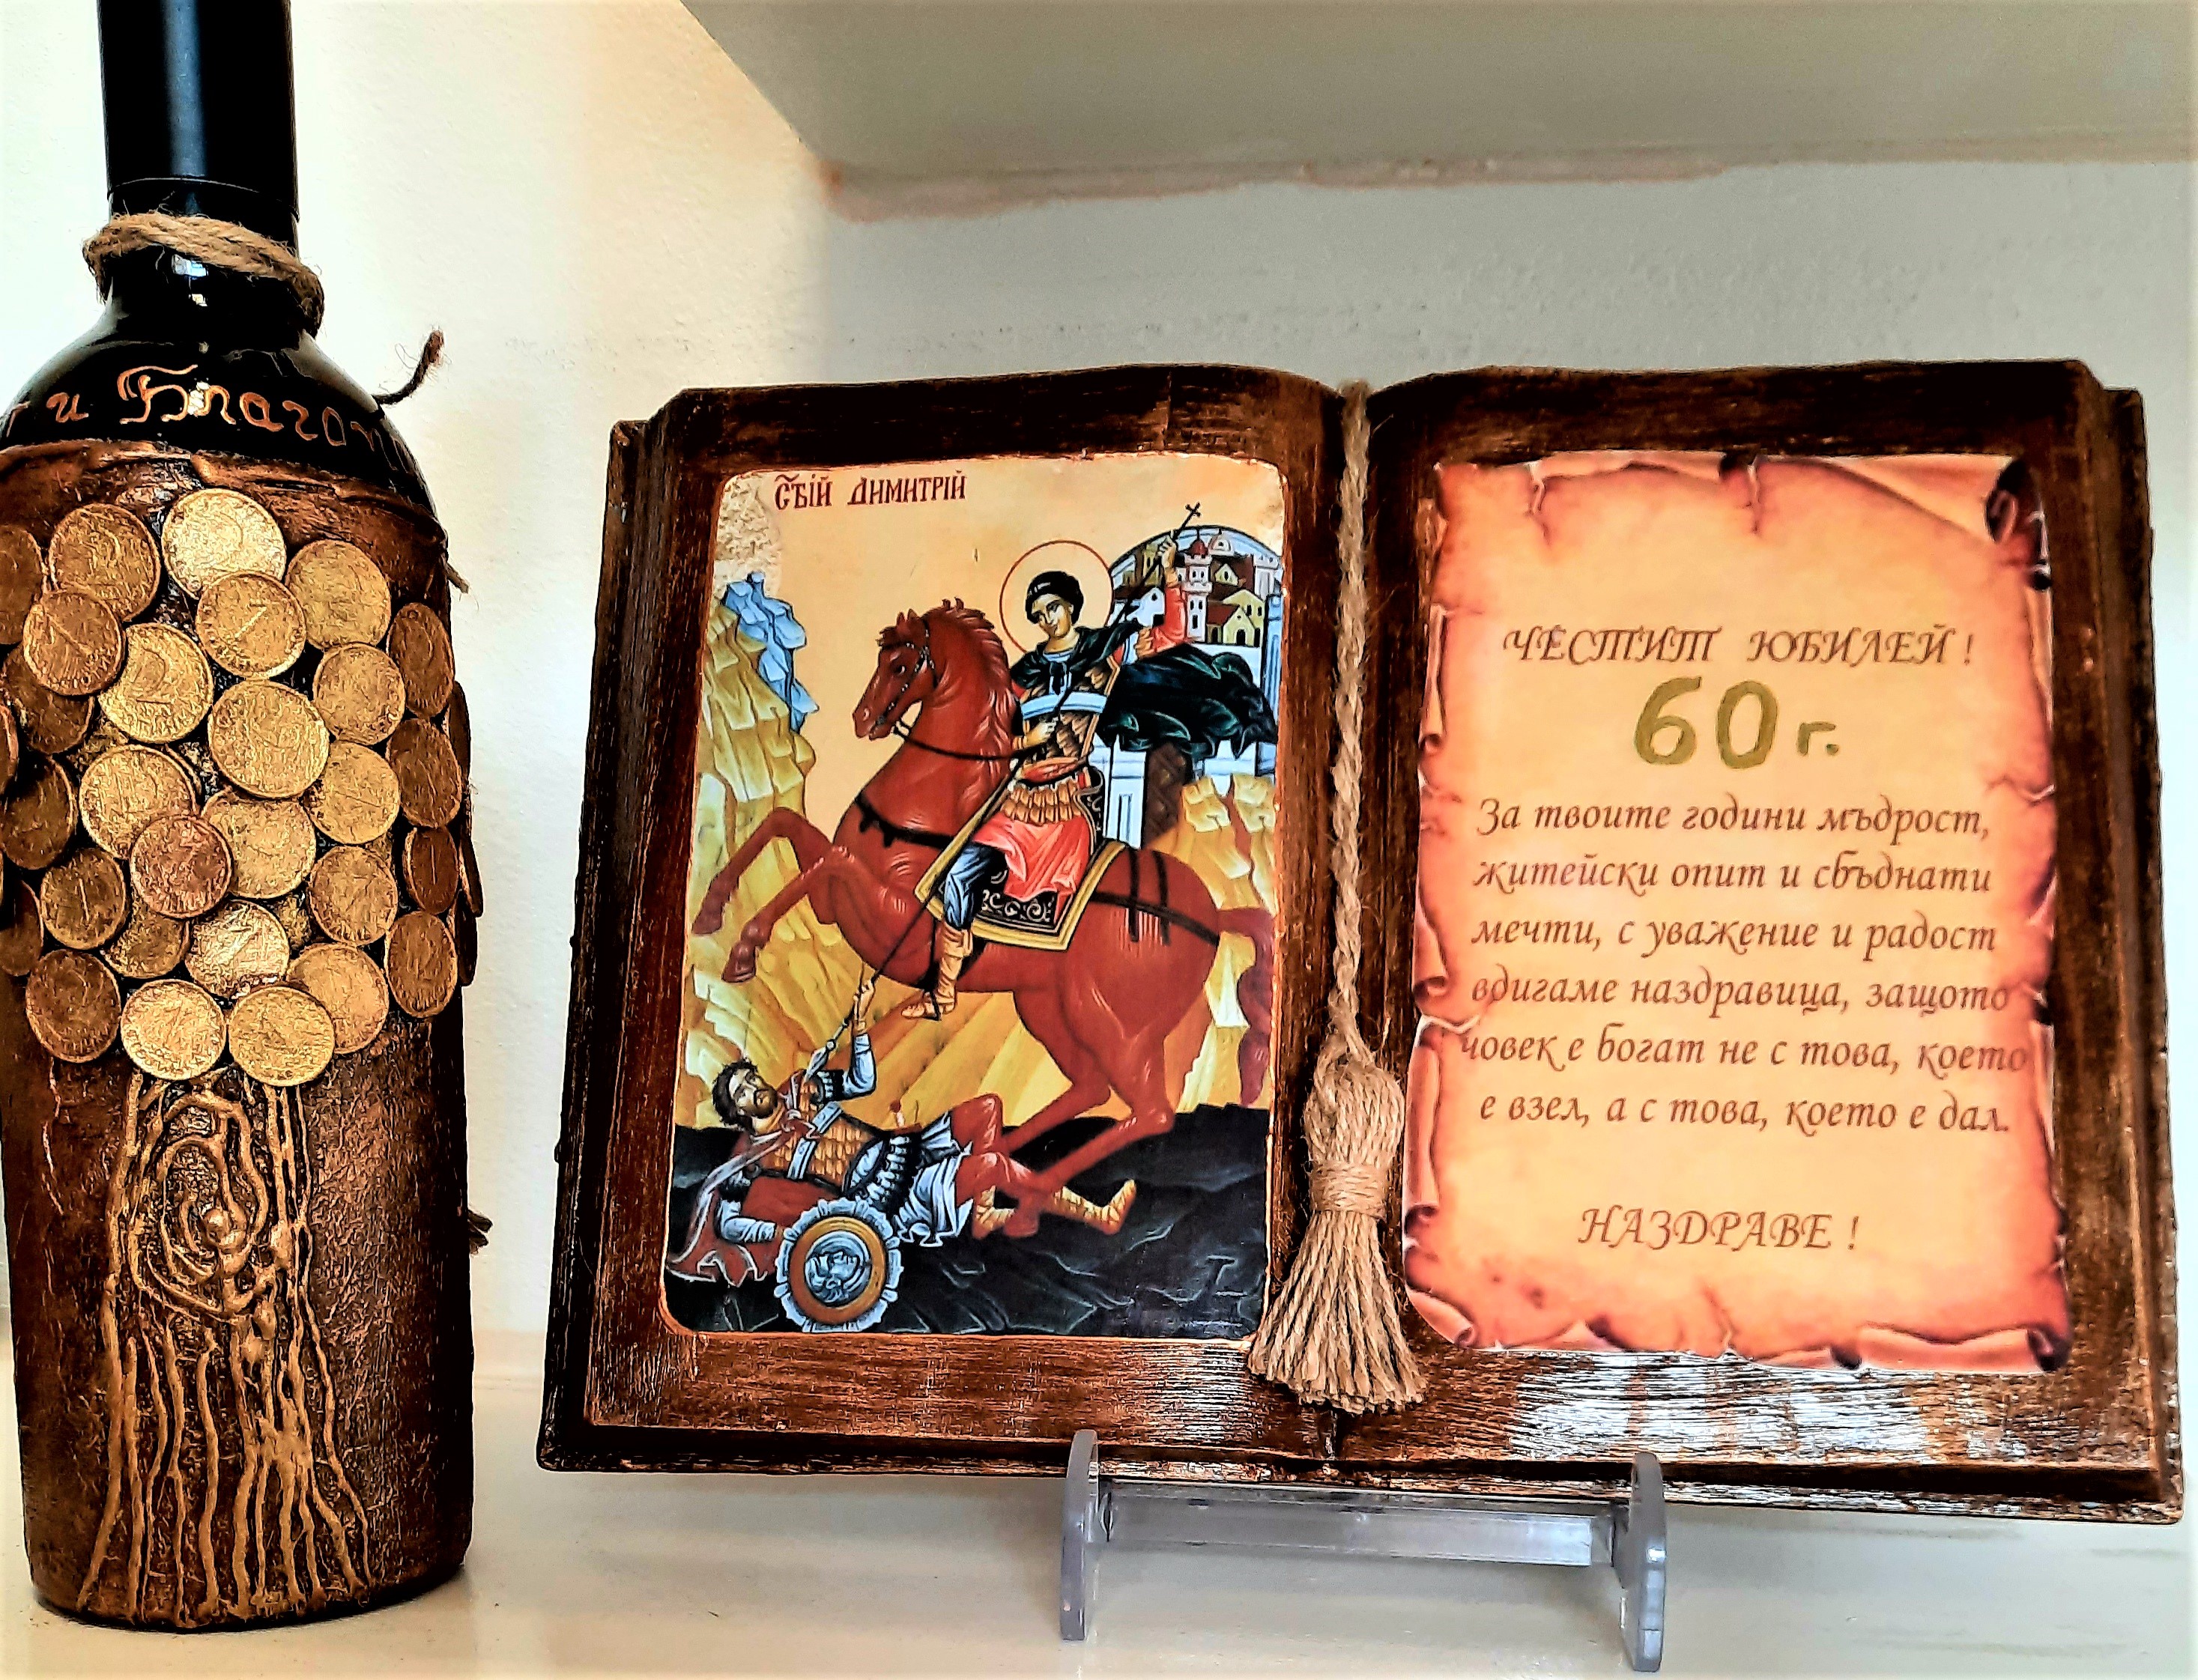 и
СТ҃ЫЙ ДИМИТРІЙ
ЧЕСТИТ ЮБИЛЕЙ !
60 г.
За твоите години мъдрост,
житейски опит и сбъднати
мечти, с уважение и радост
вдигаме наздравица, защото
човек е богат не с това, което
е взел, а с това, което е дал.
НАЗДРАВЕ !